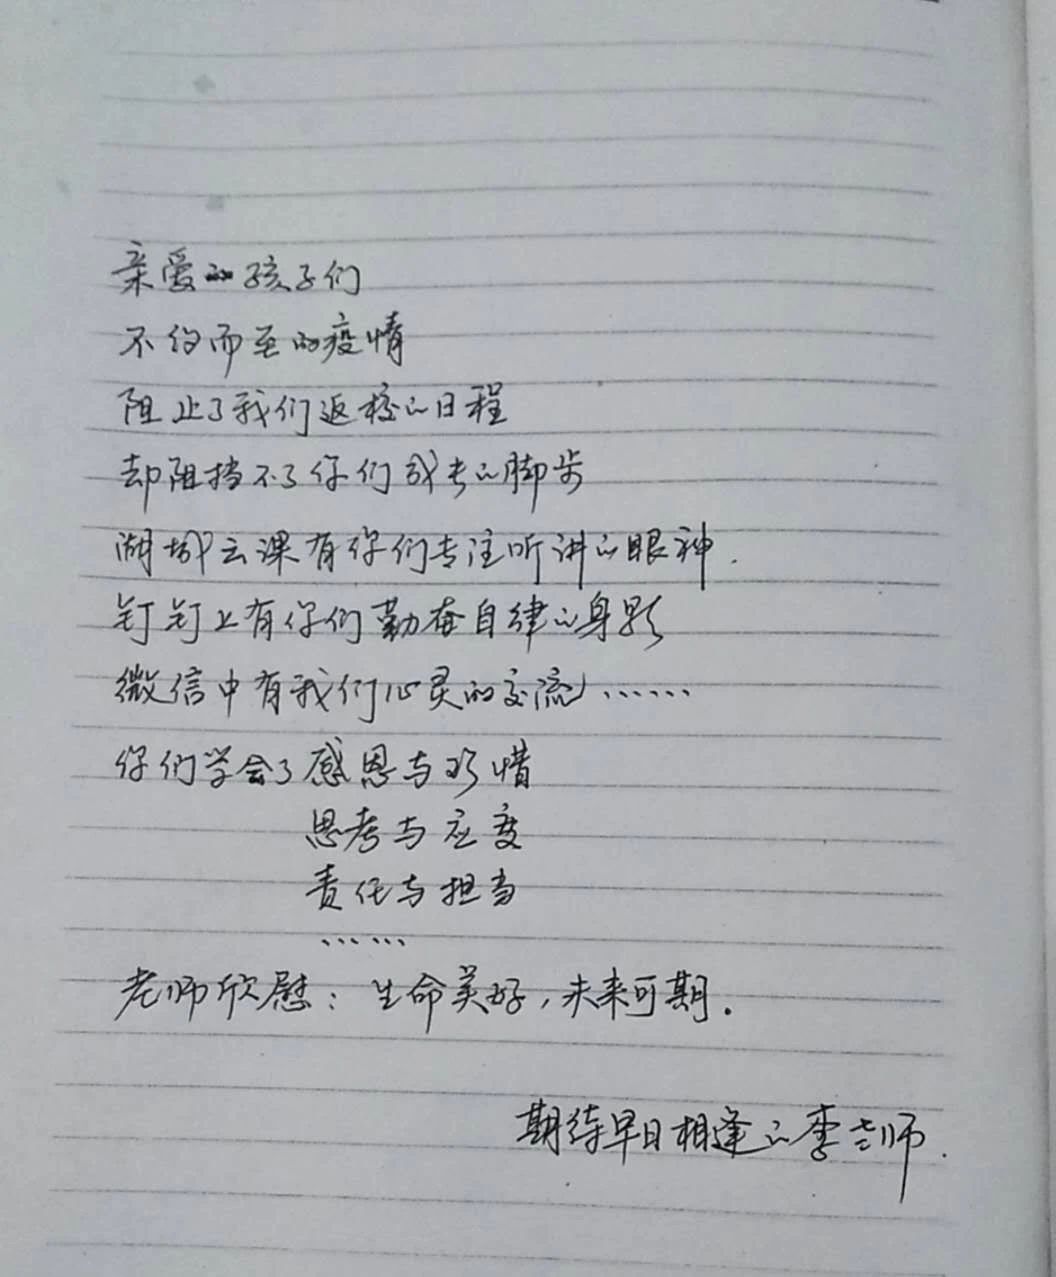 亲爱的孩子们
不约而至的疫情
阻止了我们返校的日程
却阻挡不了你们成长的脚步
湖城云课有你们专注听讲的眼神.
钉钉上有你们勤奋自律的身影
微信中有我们心灵的交流……
你们学会了感恩与珍惜
思考与应变
责任与担当
……
老师欣慰：生命美好，未来可期.
期待早日相逢的李老师.